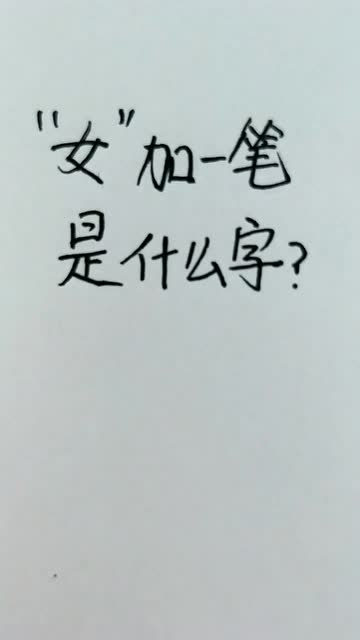 “女”加一笔
是什么字?